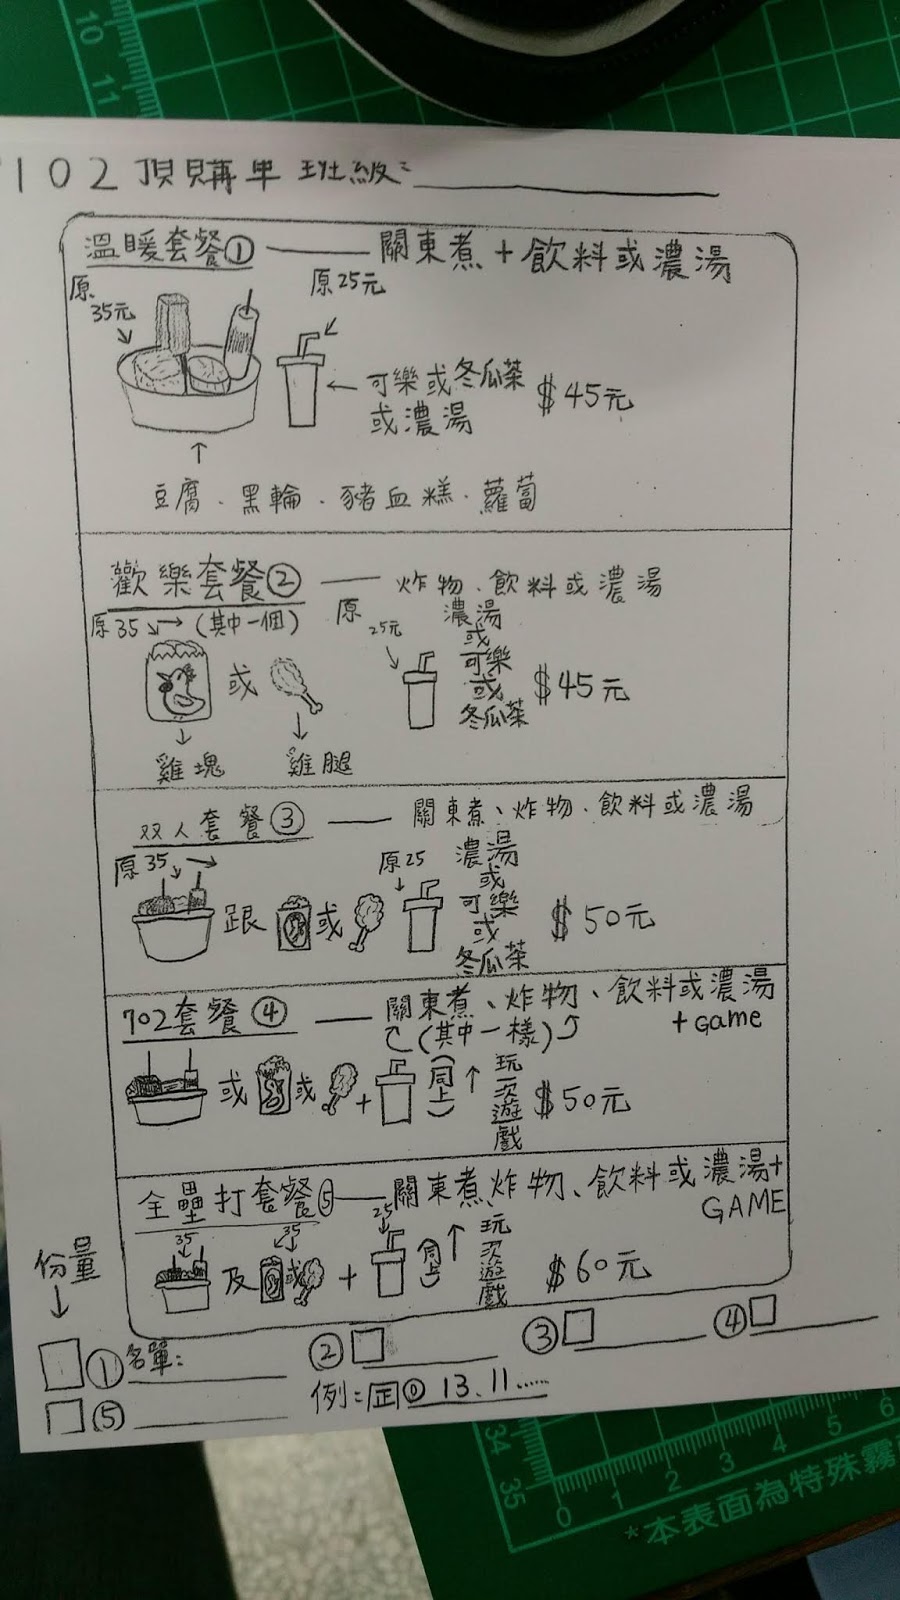 10
11
702預購單 班級:
溫暖套餐① — 關東煮+飲料或濃湯
原35元
原25元
可樂或冬瓜茶
或濃湯
$45元
豆腐、黑輪、豬血糕、蘿蔔
歡樂套餐② — 炸物、飲料或濃湯
原35 (其中一個)
原25元
濃湯
或
可樂
或
冬瓜茶
或
$45元
雞塊
雞腿
双人套餐③ — 關東煮、炸物、飲料或濃湯
原35
原25
濃湯
或
可樂
或
冬瓜茶
跟
或
$50元
702套餐④ — 關東煮、炸物、飲料或濃湯
(其中一樣)
+game
或
或
+
(同上)
玩一次遊戲
$50元
全壘打套餐⑤ — 關東煮炸物、飲料或濃湯+
GAME
35
35
25
及
或
+
(同上)
玩一次遊戲
$60元
份量
①名單:
②
③
④
⑤
例: 13.11......
34
35
0 1 2 3 4 5 6
*本表面為特殊霧